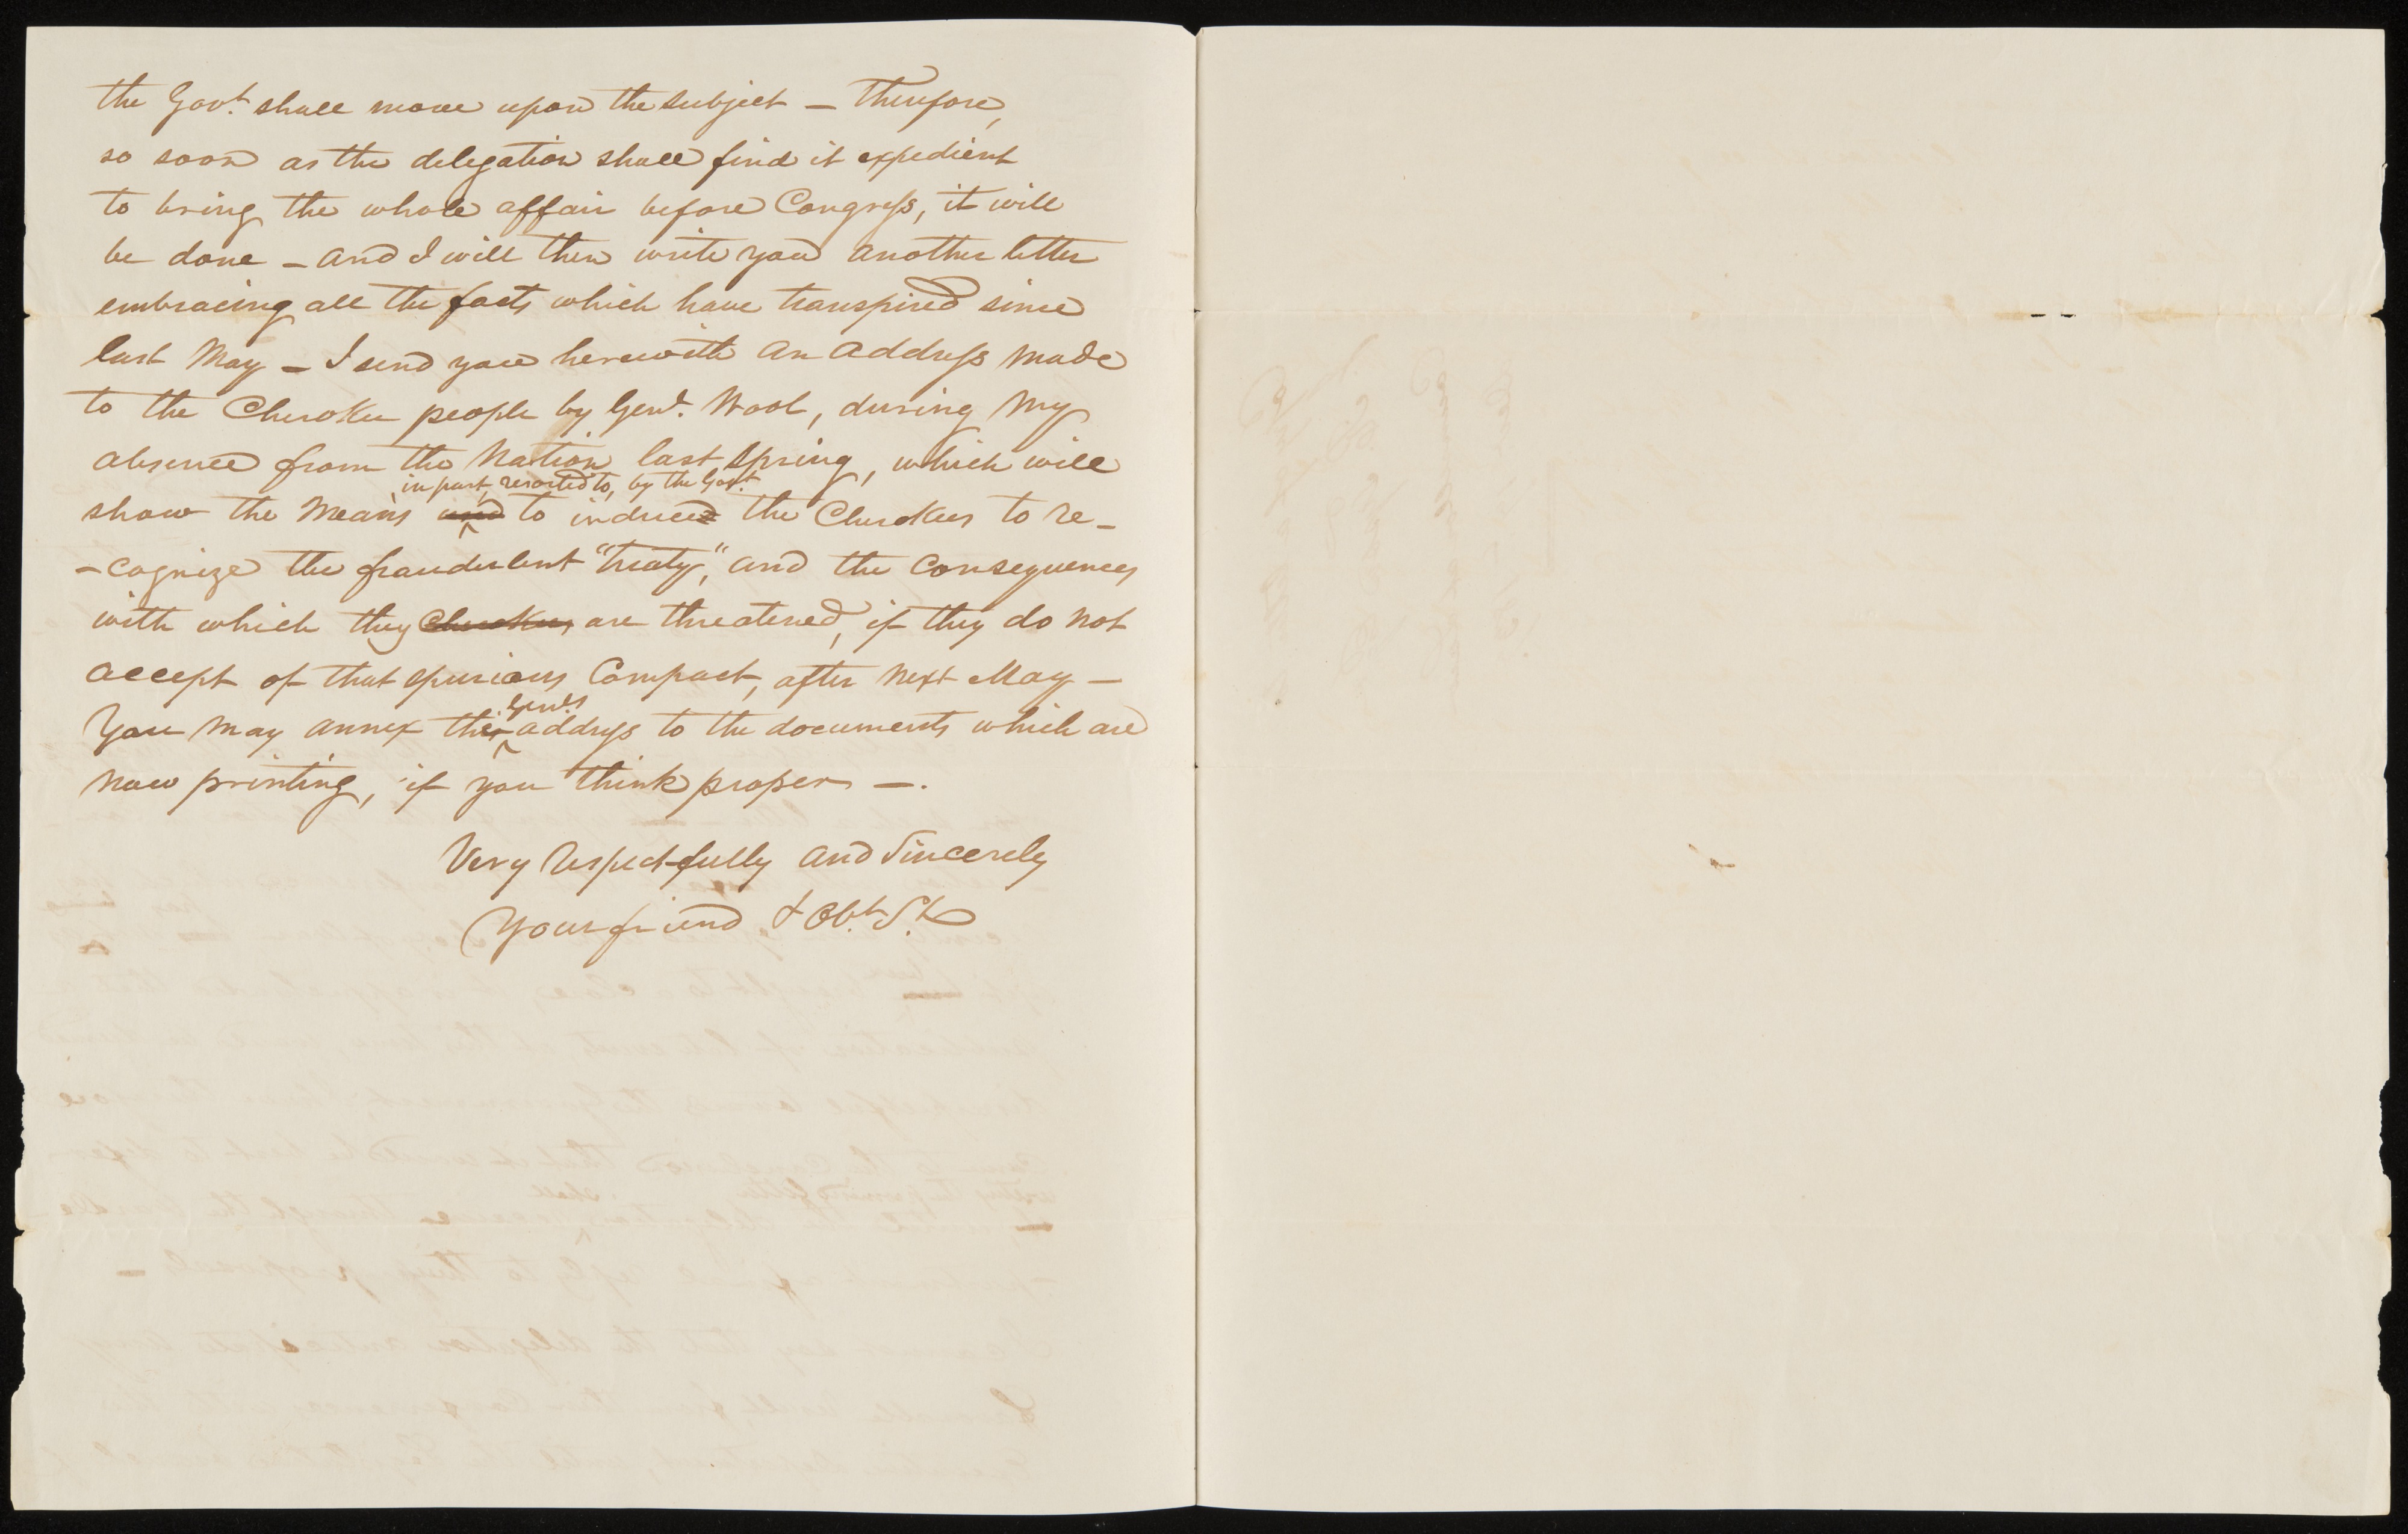 the Govt. shall move upon the subject — Therefore,
so soon as the delegation shall find it expedient
to bring the whole affair before Congress, it will
be done — and I will then write you another letter
embracing all the facts which have transpired since
last May — I send you herewith an address made
to the Cherokee people by Genl. Wool, during my
absence from the Nation last spring, which will
in part, resorted to, by the Govt.
show the means used to induce the Cherokees to re-
-cognize the fraudulent "treaty," and the consequences
with which they Cherokees are threatened, if they do not
accept of that spurious Compact, after next May —
Genls
You may annex the address to the documents which are
now printing, if you think proper —.
Very respectfully and Sincerely
Your friend & Obt. St.